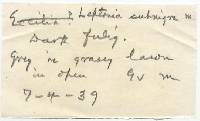 Eccilia ? Leptonia subnigra m
Dark fulig.
Grey in grassy lawn
in open Gv m
7-4-39